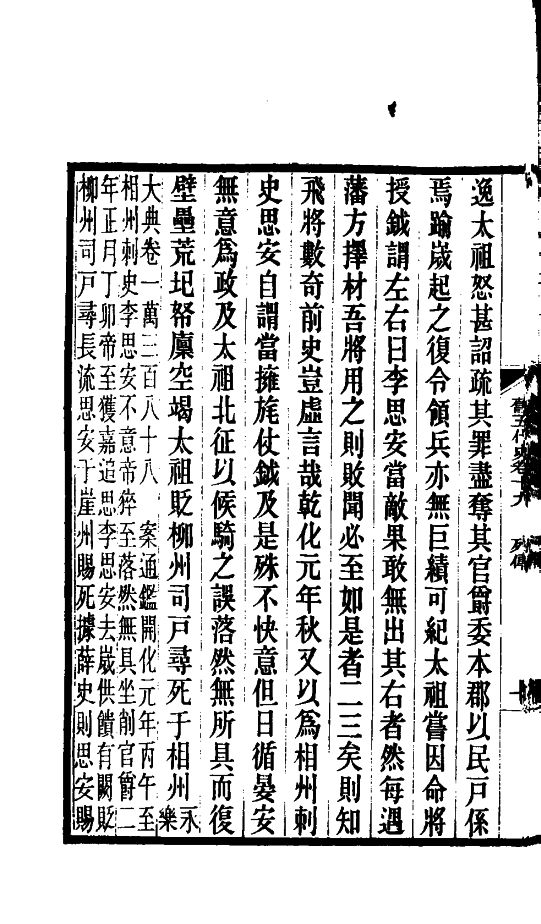 逸太祖怒甚詔疏其罪盡奪其官爵委本郡以民戸係
焉踰歲起之復令領兵亦無巨績可紀太祖嘗因命將
授鉞謂左右曰李思安當敵果敢無出其右者然每遇
藩方擇材吾將用之則敗聞必至如是者二三矣則知
飛將數奇前史豈虛言哉乾化元年秋又以爲相州刺
史思安自謂當擁旄仗鉞及是殊不快意但日循晏安
無意爲政及太祖北征以候騎之誤落然無所具而復
壁壘荒圮帑廩空竭太祖貶柳州司戸尋死于相州
永樂
大典卷一萬三百八十八　案通鑑開化元年丙午至
相州刺史李思安不意帝猝至落然無具坐削官爵二
年正月丁卯帝至獲嘉追思李思安去歲供饋有闕貶
柳州司戸尋長流思安于崖州賜死據薛史則思安賜
舊五代史卷十九　列傳
十